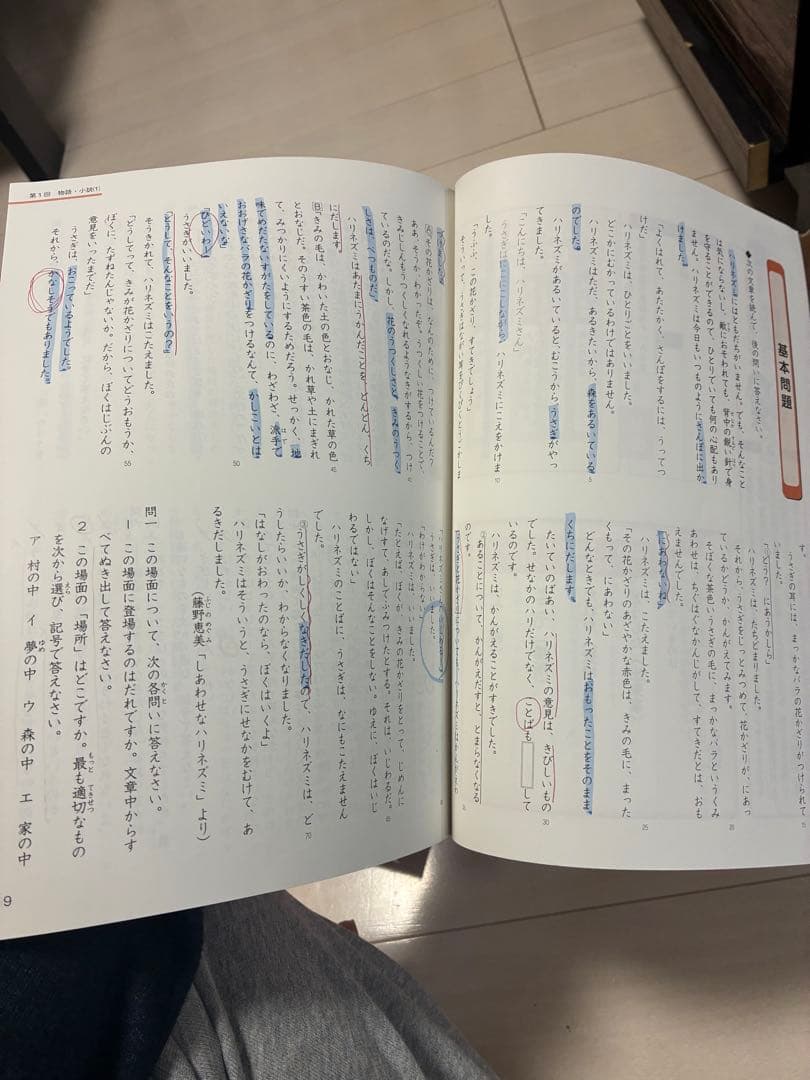 基本問題
◆次の文章を読んで、後の問いに答えなさい。
ハリネズミにはともだちがいません。でも、そんなこと
は気にならないし、敵におそわれても、背中の鋭い針で身
を守ることができるので、ひとりでいても何の心配もあり
ません。ハリネズミは今日もいつものようにさんぽに出か
けました。
「よくはれて、あたたかく、さんぽをするには、うってつ
けだ」
ハリネズミは、ひとりごとをいいました。
どこかにむかっているわけではありません。
ハリネズミはただ、あるきたいから、森をあるいている
のでした。
ハリネズミがあるいていると、むこうからうさぎがやっ
てきました。
「こんにちは、ハリネズミさん」
うさぎはにこにこしながら、ハリネズミにこえをかけま
した。
「うふふ、この花かざり、すてきでしょう」
そういって、うさぎはながい耳をぴくぴくとうごかしま
うさぎの耳には、まっかなバラの花かざりがつけられて
いました。
「どう? にあうかしら」
ハリネズミは、たちどまりました。
それから、うさぎをじっとみつめて、花かざりが、にあっ
ているかどうか、かんがえてみます。
そぼくな茶色いうさぎの毛に、まっかなバラというくみ
あわせは、ちぐはぐなかんじがして、すてきだとは、おも
えませんでした。
「にあわないね」
ハリネズミは、こたえました。
「その花かざりのあざやかな赤色は、きみの毛に、まった
くもって、にあわない」
どんなときでも、ハリネズミはおもったことをそのまま、
くちにだします。
たいていのばあい、ハリネズミの意見は、きびしいもの
でした。せなかのハリだけでなく、ことばも□して
いるのです。
ハリネズミは、かんがえることがすきでした。
あることについて、かんがえだすと、とまらなくなる
のです。
つづけました。
「その花かざりは、なんのために、つけているんだ?
ああ、そうか、わかったぞ。うつくしい花をつけることで、
きみじしんもうつくしくなれるようなきがするから、つけ
ているのだな。しかし、花のうつくしさと、きみのうつく
しさは、べつものだ」
ハリネズミはあたまにうかんだことを、どんどん、くち
にだします。
「きみの毛は、かわいた土の色とおなじ、かれた草の色
とおなじだ。そのうすい茶色の毛は、かれ草や土にまぎれ
て、みつかりにくいようにするためだろう。せっかく、地
味でめだたないすがたをしているのに、わざわざ、派手で
おおげさなバラの花かざりをつけるなんて、かしこいとは
いえないな」
「ひどいわ」
うさぎがいいました。
「どうして、そんなことをいうの?」
そうきかれて、ハリネズミはこたえました。
「どうしてって、きみが花かざりについてどうおもうか、
ぼくに、たずねたんじゃないか。だから、ぼくはじぶんの
意見をいったまでだ」
うさぎは、おこっているようでした。
それから、かなしそうでもありました。
うさぎは、いいました。
「わけがわからない」
ハリネズミは、いいました。
「たとえば、ぼくが、きみの花かざりをとって、じめんに
なげすて、あしでふみつけたとする。それは、いじわるだ。
しかし、ぼくはそんなことをしない。ゆえに、ぼくはいじ
わるではない」
ハリネズミのことばに、うさぎは、なにもこたえません
でした。
うさぎがしくしくなきだしたので、ハリネズミは、ど
うしたらいいか、わからなくなりました。
「はなしがおわったのなら、ぼくはいくよ」
ハリネズミはそういうと、うさぎにせなかをむけて、あ
るきだしました。
(藤野恵美「しあわせなハリネズミ」より)
問一 この場面について、次の各問いに答えなさい。
1 この場面に登場するのはだれですか。文章中からす
べてぬき出して答えなさい。
2 この場面の「場所」はどこですか。最も適切なもの
を次から選び、記号で答えなさい。
ア 村の中 イ 夢の中 ウ 森の中 エ 家の中
第1回 物語・小説(1)
9